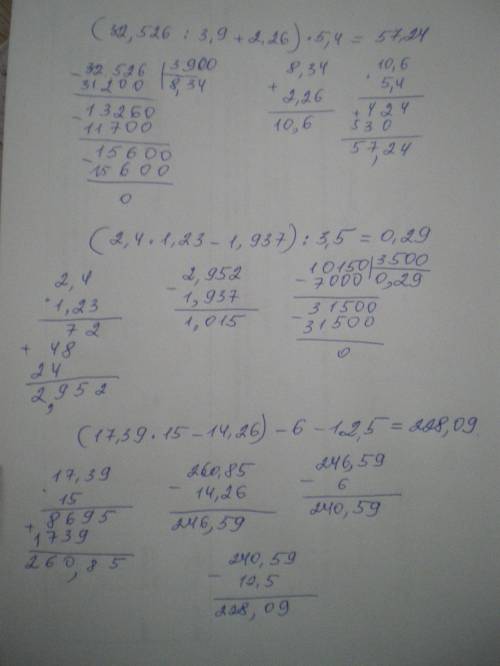 (32,526 : 3,9 + 2,26) · 5,4 = 57,24
32,526 3900
- 31200 8,34
13260
- 11700
15600
- 15600
0
8,34
+ 2,26
10,6
10,6
· 5,4
+ 424
530
57,24
(2,4 · 1,23 - 1,937) : 3,5 = 0,29
2,4
· 1,23
72
+ 48
24
2,952
2,952
- 1,937
1,015
10150 3500
- 7000 0,29
31500
- 31500
0
(17,39 · 15 - 14,26) - 6 - 12,5 = 228,09
17,39
· 15
+ 8695
1739
260,85
260,85
- 14,26
246,59
246,59
- 6
240,59
240,59
- 12,5
228,09